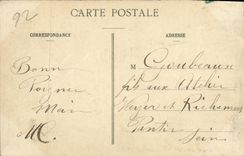 92
CARTE POSTALE
CORRESPONDANCE
ADRESSE
Bonne
Poignée
Main
M.
M Goubeaux
fils aux Atelier
Weyer et Richemond
Pantin
Seine